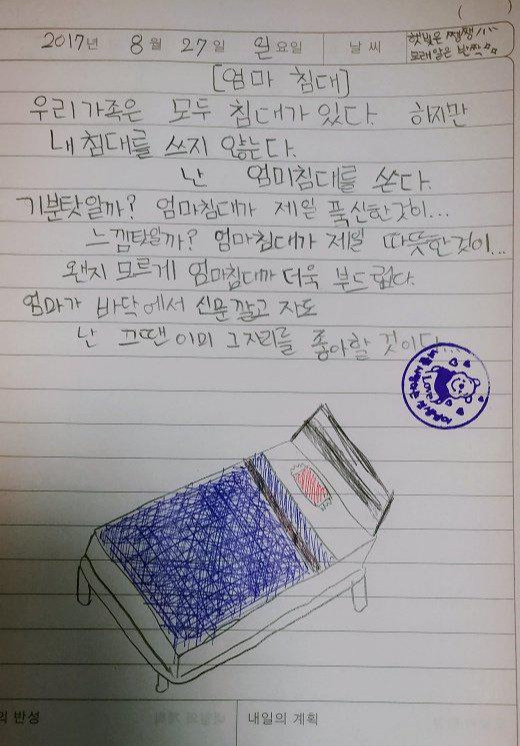 2017년 8월 27일 일요일 날씨 햇빛은 쨍쨍
모래알은 반짝
[엄마 침대]
우리가족은 모두 침대가 있다. 하지만
내침대를 쓰지 않는다.
난 엄미침대를 쓴다.
기분탓일까? 엄마침대가 제일 푹신한것이...
느낌탓일까? 엄마침대가 제일 따뜻한것이...
왠지 모르게 엄마침대가 더욱 부드럽다.
엄마가 바닥에서 신문깔고 자도
난 그땐 이미 그자리를 좋아할 것이다.
Love
의 반성 내일의 계획